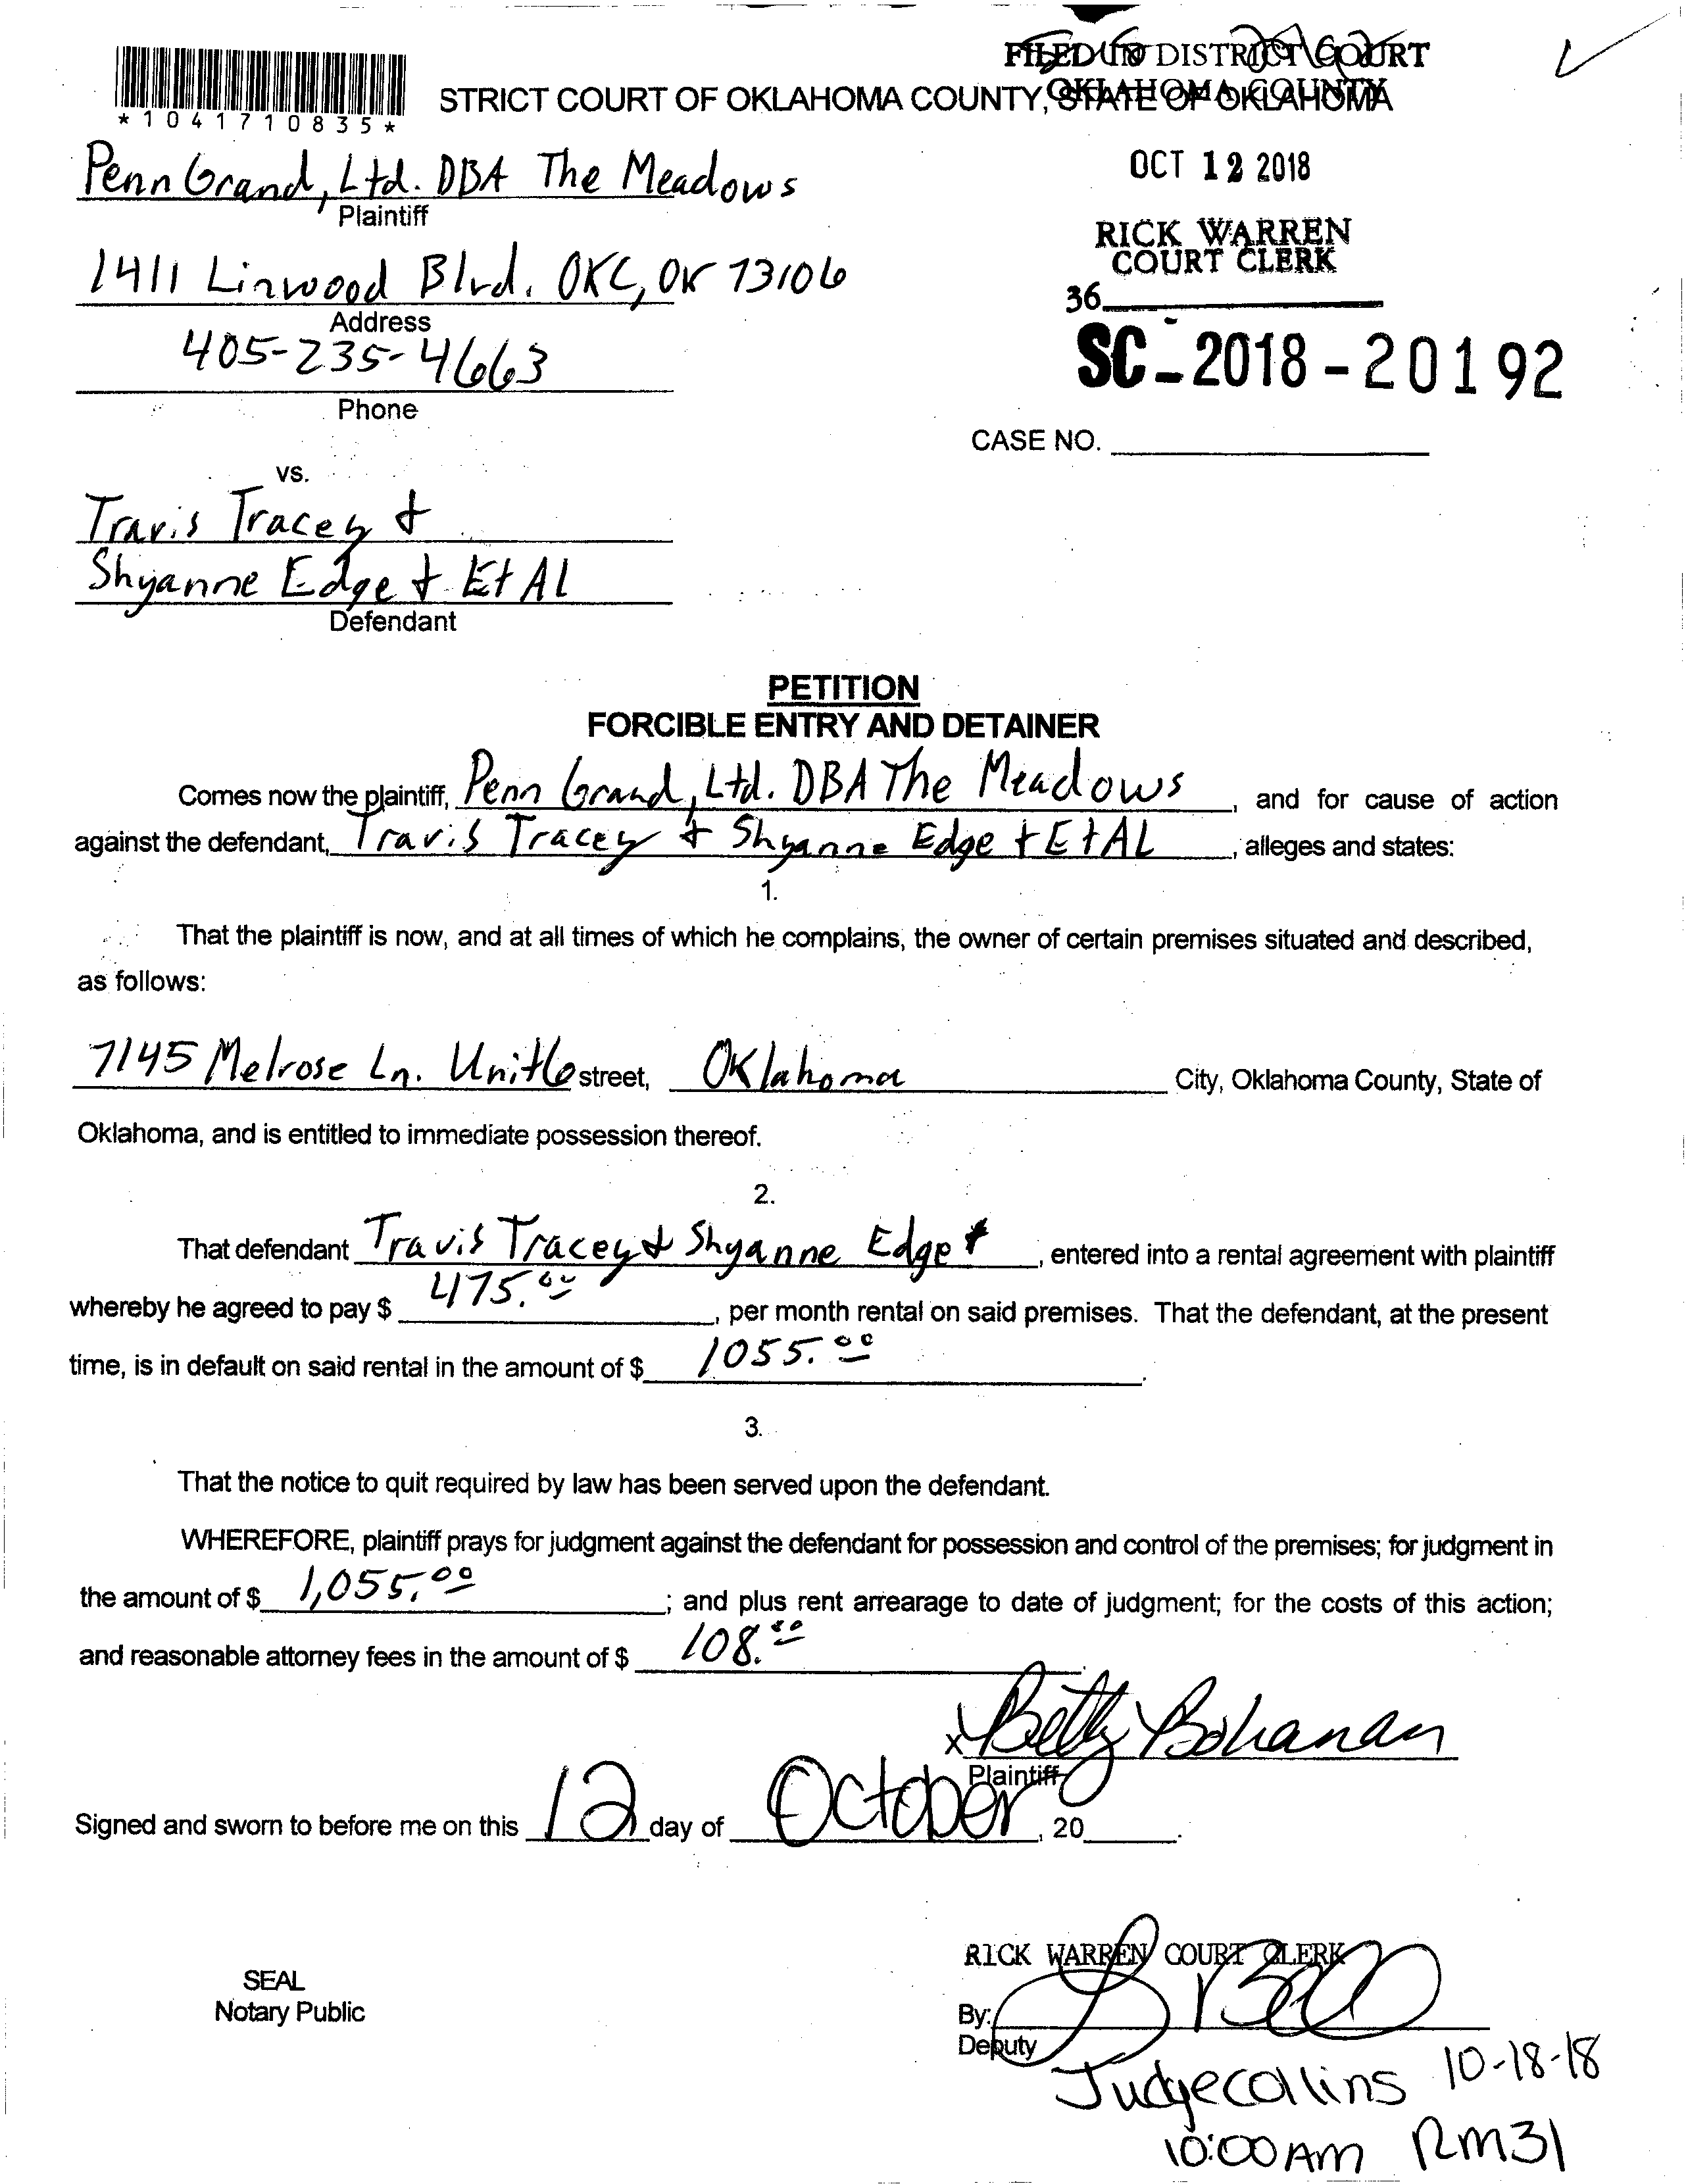 FILED IN DISTRICT COURT
OKLAHOMA COUNTY
STRICT COURT OF OKLAHOMA COUNTY, STATE OF OKLAHOMA
*1041710835*
OCT 12 2018
Penn Grand, Ltd. DBA The Meadows
Plaintiff
RICK WARREN
COURT CLERK
1411 Linwood Blvd. OKC, OK 73106
Address
36
405-235-4663
Phone
SC-2018-20192
CASE NO.
vs.
Travis Tracey &
Shyanne Edge & Et Al
Defendant
PETITION
FORCIBLE ENTRY AND DETAINER
Comes now the plaintiff, Penn Grand, Ltd. DBA The Meadows, and for cause of action
against the defendant, Travis Tracey & Shyanne Edge & Et AL, alleges and states:
1.
That the plaintiff is now, and at all times of which he complains, the owner of certain premises situated and described,
as follows:
7145 Melrose Ln. Unit 6 street, Oklahoma City, Oklahoma County, State of
Oklahoma, and is entitled to immediate possession thereof.
2.
That defendant Travis Tracey & Shyanne Edge &, entered into a rental agreement with plaintiff
whereby he agreed to pay $ 475.00, per month rental on said premises. That the defendant, at the present
time, is in default on said rental in the amount of $ 1055.00.
3.
That the notice to quit required by law has been served upon the defendant.
WHEREFORE, plaintiff prays for judgment against the defendant for possession and control of the premises; for judgment in
the amount of $ 1,055.00; and plus rent arrearage to date of judgment; for the costs of this action;
and reasonable attorney fees in the amount of $ 108.00.
x Betty Bohanan
Plaintiff
Signed and sworn to before me on this 12 day of October, 20
RICK WARREN COURT CLERK
SEAL
Notary Public
By:
Deputy
Judge Collins 10-18-18
10:00 AM RM31